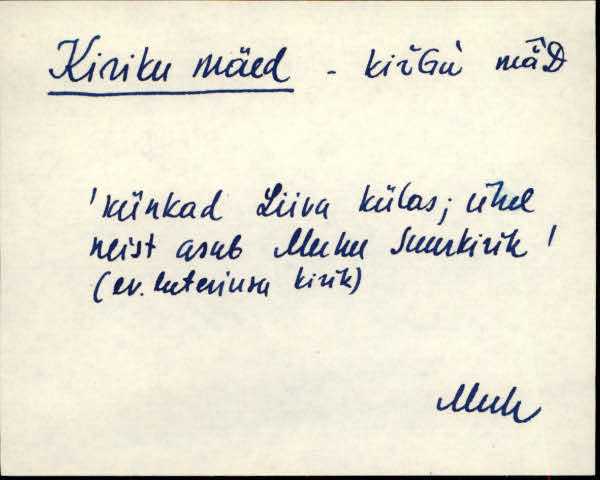 Kiriku mäed - kiřGù mä̆D
'künkad Liiva külas; ühel
neist asub Muhu Suurkirik'
(ev. luteriusu kirik)
Muh